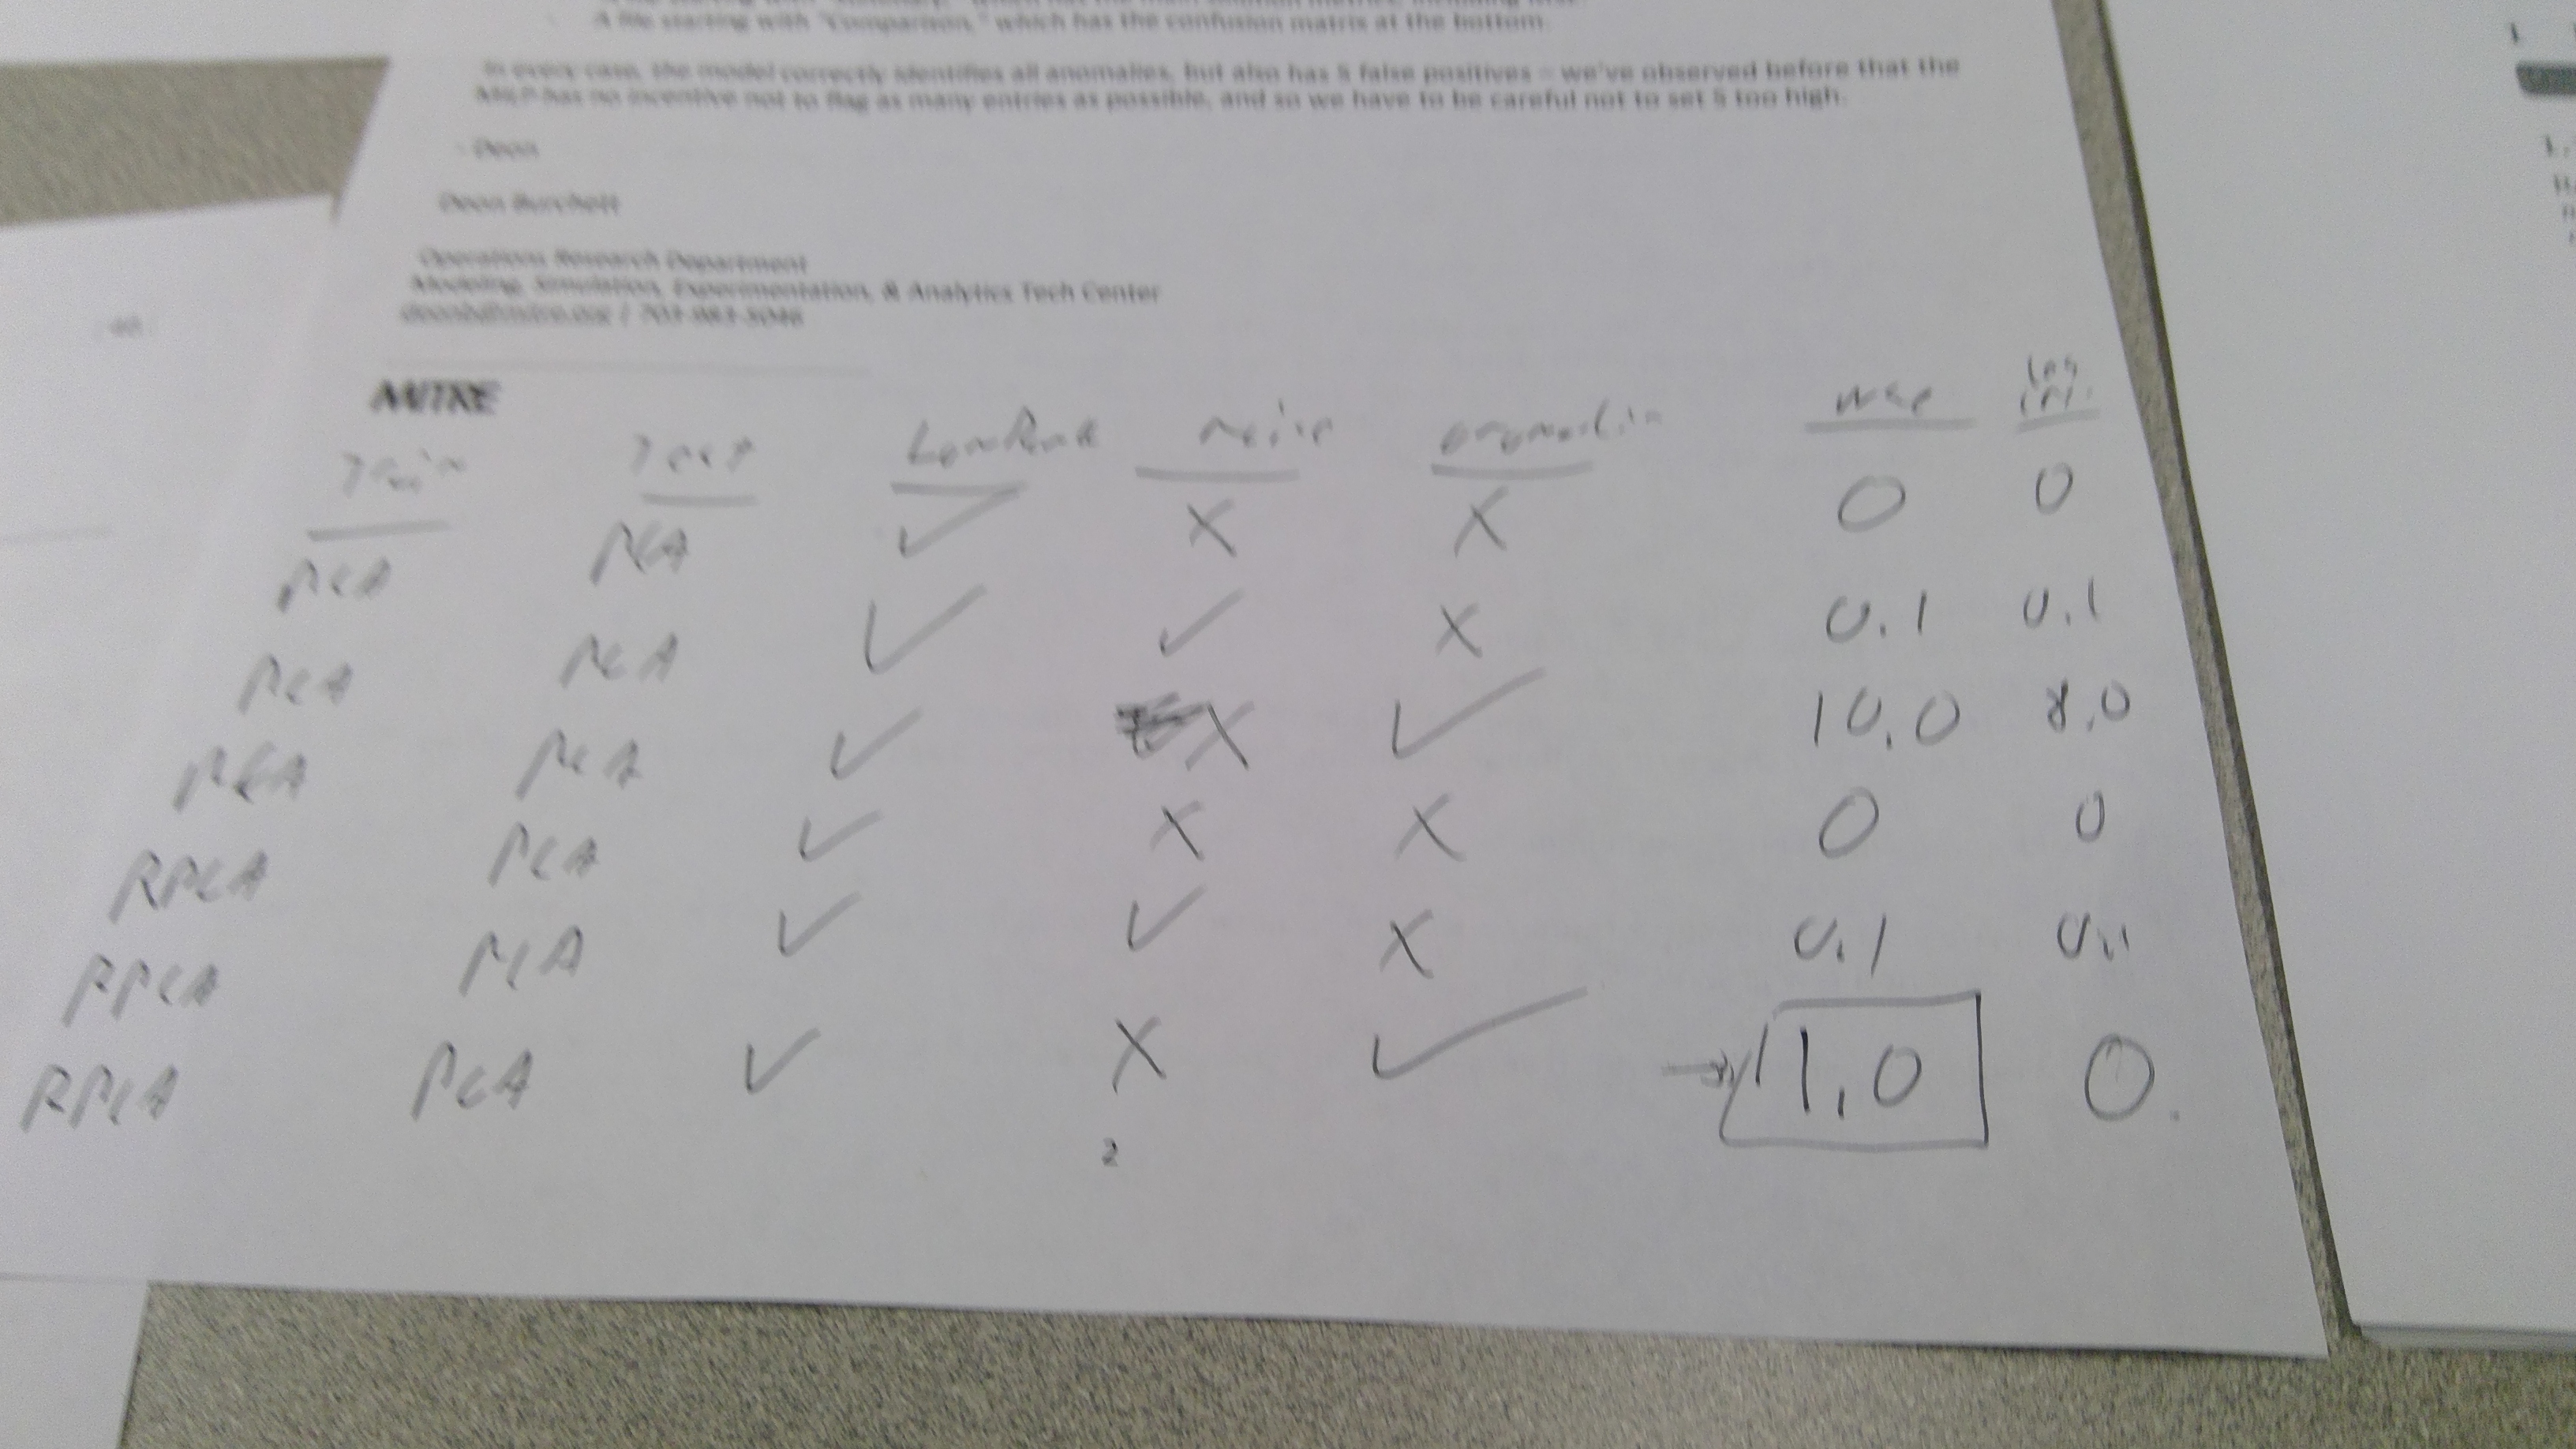 A file starting with "Comparison," which has the confusion matrix at the bottom.
In every case, the model correctly identifies all anomalies, but also has 5 false positives – we've observed before that the
MILP has no incentive not to flag as many entries as possible, and so we have to be careful not to set S too high.
- Deon
Deon Burchett
Operations Research Department
Modeling, Simulation, Experimentation, & Analytics Tech Center
MITRE
Train Test Low Rank noise
PCA PCA ✓ X X 0 0
PCA PCA ✓ ✓ X 0.1 0.1
PCA PCA ✓ X ✓ 10.0 8.0
RPCA PCA ✓ X X 0 0
RPCA PCA ✓ ✓ X 0.1 0.1
RPCA PCA ✓ X ✓ → 1.0 0
2